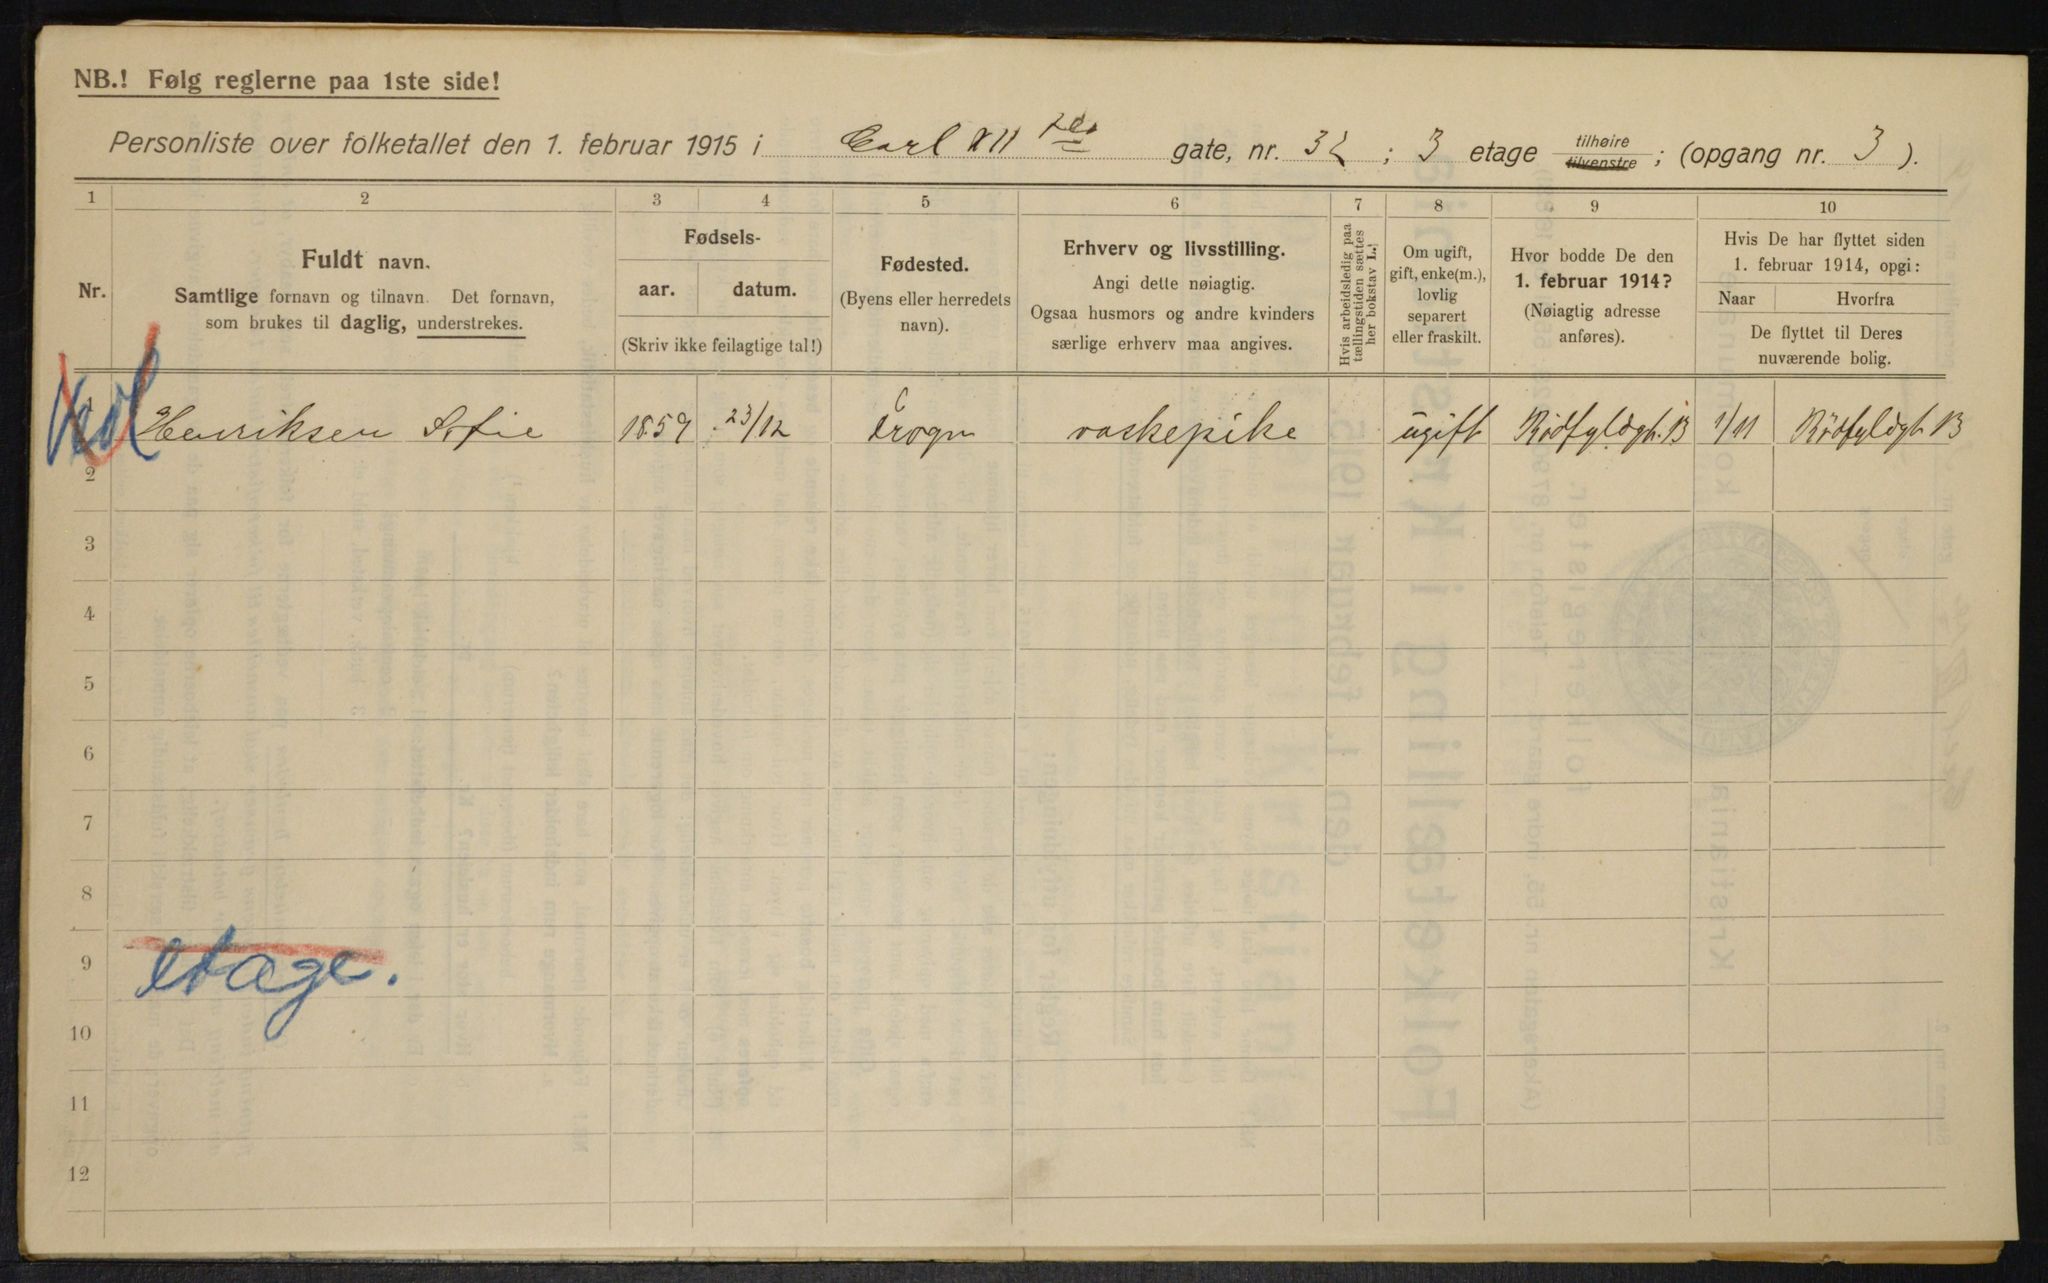 NB.! Følg reglerne paa 1ste side!
Personliste over folketallet den 1. februar 1915 i Carl XII tes gate, nr. 32 ; 3 etage tilhøire tilvenstre ; (opgang nr. 3 ).
1 2 3 4 5 6 7 8 9 10
Nr.
Fuldt navn.
Samtlige fornavn og tilnavn. Det fornavn,
som brukes til daglig, understrekes.
Fødsels-
aar. datum.
(Skriv ikke feilagtige tal!)
Fødested.
(Byens eller herredets
navn).
Erhverv og livsstilling.
Angi dette nøiagtig.
Ogsaa husmors og andre kvinders
særlige erhverv maa angives.
Hvis arbeidsledig paa
tællingstiden sættes
her bokstav L.!
Om ugift,
gift, enke(m.),
lovlig
separert
eller fraskilt.
Hvor bodde De den
1. februar 1914?
(Nøiagtig adresse
anføres).
Hvis De har flyttet siden
1. februar 1914, opgi:
Naar Hvorfra
De flyttet til Deres
nuværende bolig.
1 Henriksen Sofie 1859 23/12 Frogn vaskepike ugift Rødfyldgt. 13 1/11 Rødfyldgt. 13
2
3
4
5
6
7
8
9 etage.
10
11
12